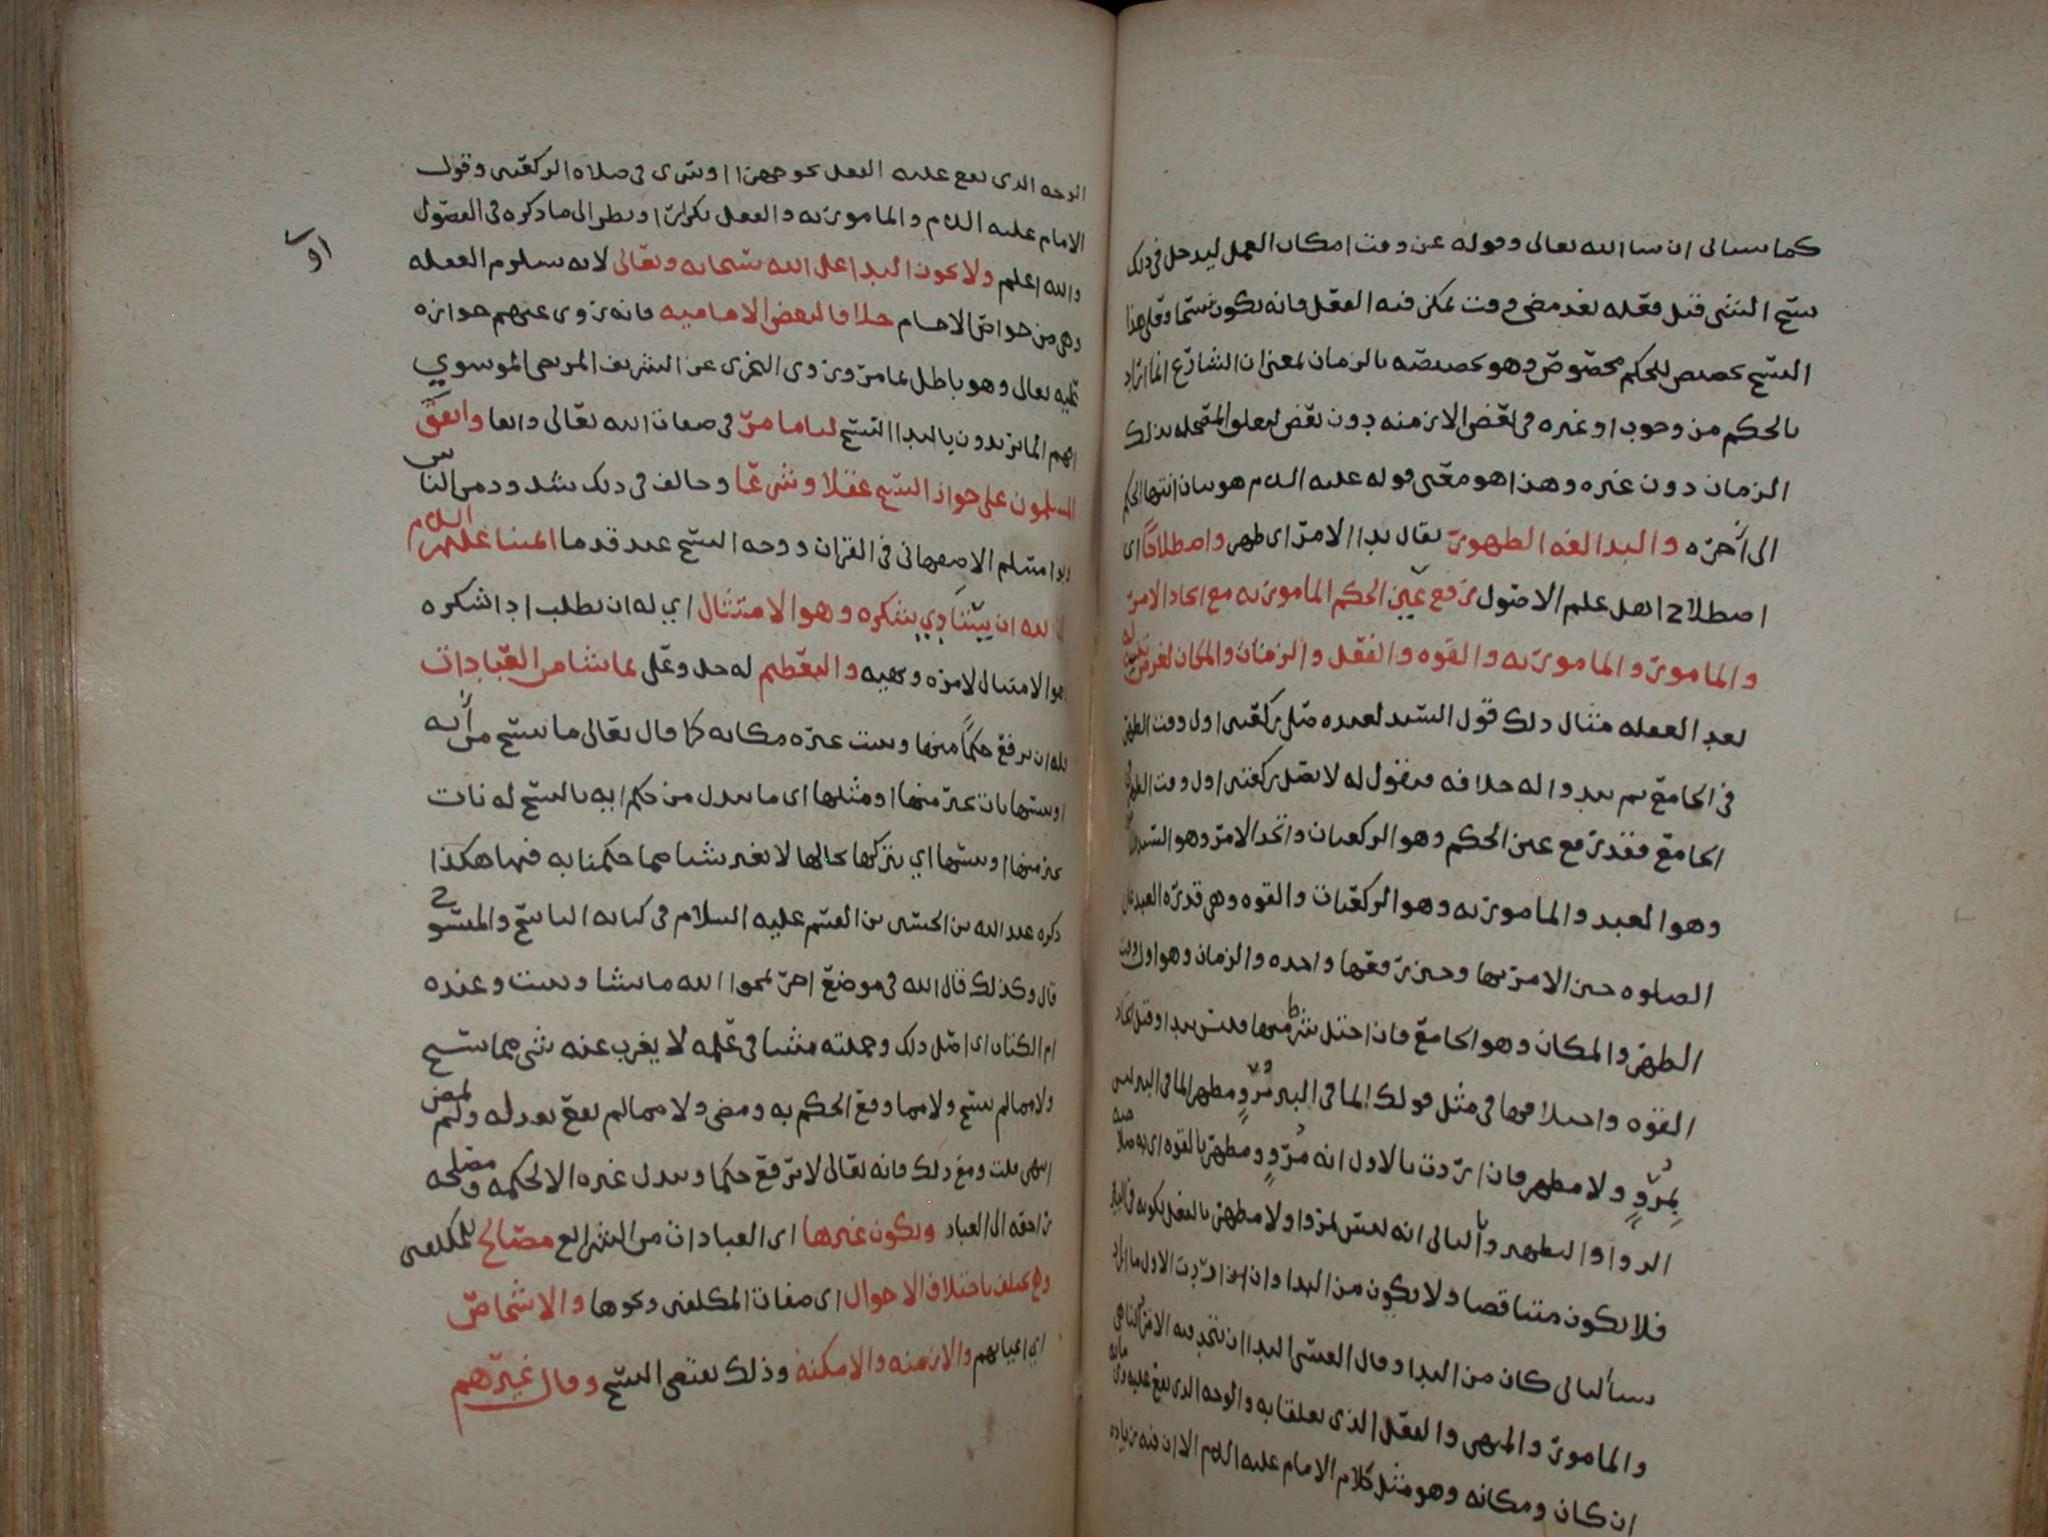 كما سياتي ان شا الله تعالى وقوله عن وقت امكان العمل ليدخل في ذلك
نسخ الشي قبل فعله بعد مضي وقت يمكن فيه الفعل فانه يكون نسخا وقيل هذا
النسخ تخصيص للحكم مخصوص وهو تخصيصه بالزمان بمعنى ان الشارع انما اراد
بالحكم من وجوب او غيره في بعض الازمنه دون بعض المصلحه بذلك
الزمان دون غيره وهذا هو معنى قوله عليه السلم هو بيان انتها الحكم
الى آخره والبدا لغه الظهور يقال بدا الامر اي ظهر واصطلاحًا اي
اصطلاح اهل علم الاصول رفع عين الحكم المامور به مع اتحاد الامر
والمامور والمامور به والقوه والفعل والزمان والمكان لغرض تنبه له
بعد الغفله مثال ذلك قول السيد لعبده صلي ركعتين اول وقت الظهر
في الجامع ثم يبدوا له خلافه فيقول له لا تصل ركعتين اول وقت الظهر في
الجامع فقد رفع عين الحكم وهو الركعتان واتحد الامر وهو السيد
وهو العبد والمامور به وهو الركعتان والقوه وهي قدره العبد على
الصلوه حين الامر بها وحين رفعها واحده والزمان وهو اول وقت
الظهر والمكان وهو الجامع فان اختل شرط منها فليس ببدا وقيل اتحاد
القوه واختلافها في مثل قولك الما في البير مُرْوٍ ومطهر الما في البير ليس
بمُرْوٍ ولا مطهر فان اردت بالاول انه مُرْوٍ ومطهر بالقوه اي به صلاحيه
الروا والتطهير وبالثاني انه ليس بمروا ولا مطهر بالفعل لكونه في البير
فلا يكون متناقضا ولا يكون من البدا وان اردت الاول ما اراد
بالثاني كان من البدا وقال القرشي البدا ان يتحد فيه الامر الناهي
والمامور والمنهي والفعل الذي تعلقا به والوجه الذي يقع عليه وزمانه
ان كان ومكانه وهو مثل كلام الامام عليه السلم الا ان فيه زياده
الوجه الذي يقع عليه الفعل نحو جهرا او سرى في صلاه الركعتين وقول
الامام عليه السلم والمامور به والفعل تكرار او نظر الى ما ذكره في الفصول
والله اعلم ولا يجوز البدا على الله سبحانه وتعالى لانه يستلزم الغفله
وهي من خواص الاجسام خلافا لبعض الاماميه فانه روى عنهم جوازه
عليه تعالى وهو باطل بما مر وروى النجري عن الشريف المرتضى الموسوي
انهم انما يريدون بالبدا النسخ لنا ما مر في صفات الله تعالى واتفا واتفق
المسلمون على جواز النسخ عقلا وشرعًا وخالف في ذلك شذوذ من الناس
وابوا مسلم الاصفهاني في القران ووجه النسخ عند قدما ائمتنا عليهم السلام
ان لله ان يتادي بشكره وهو الامتثال اي له ان يطلب اد اشكره
وهو الامتثال لامره ونهيه والتعظيم له جل وعلى بما يشا من العبادات
فله ان يرفع حكمًا منها ويثبت غيره مكانه كما قال تعالى ما ننسخ من آيه
او ننسها نات بخير منها او مثلها اي ما نبدل من حكم ايه بالنسخ له نات
بخير منها او ننسها اي نتركها بحالها لا نغير شيا مما حكمنا به فيها هكذا
ذكره عبد الله بن الحسين بن القسم عليه السلام في كتابه الناسخ والمنسوخ
قال وكذلك قال الله في موضع اخر يمحوا الله ما يشا ويثبت وعنده
ام الكتاب اي اصل ذلك وجملته مثبتا في علمه لا يغرب عنه شي مما نسخ
ولا مما لم ينسخ ولا مما وقع الحكم به ومضى ولا مما لم يقع بعد له ولم يمض
انتهى قلت ومع ذلك فانه تعالى لا يرفع حكما ويبدل غيره الا لحكمه ومصلحه
راجعه الى العباد ويكون غيرها اي العبادات من الشرايع مصالح للمكلفين
وهي تختلف باختلاف الاحوال اي صفات المكلفين ونحوها والاشخاص
اي اعيانهم والازمنه والامكنه وذلك يقتضي النسخ وقال غيرهم
او